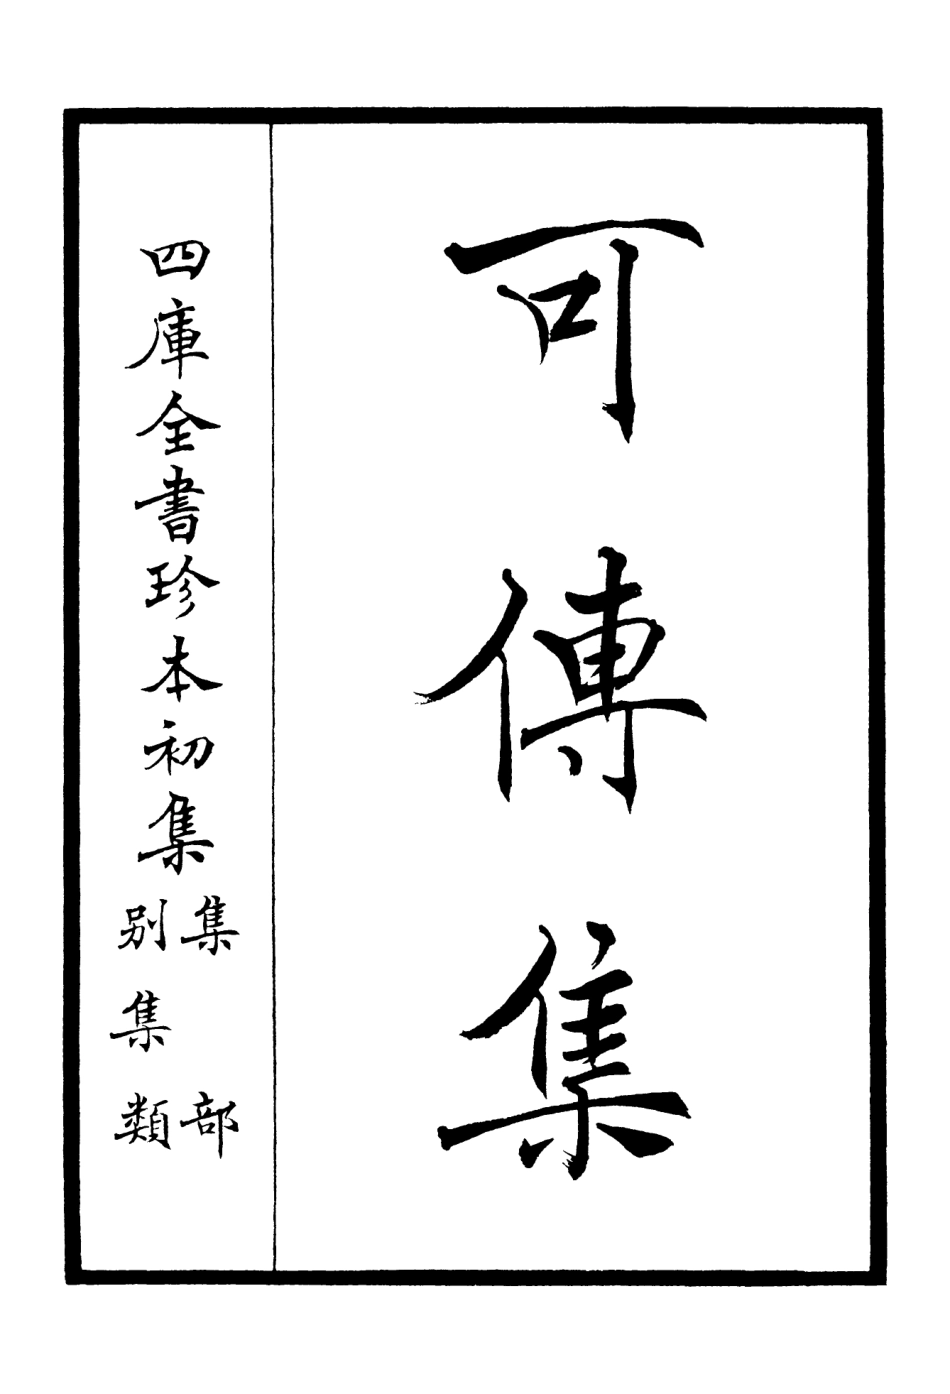 可傳集
四庫全書珍本初集
集部
别集類